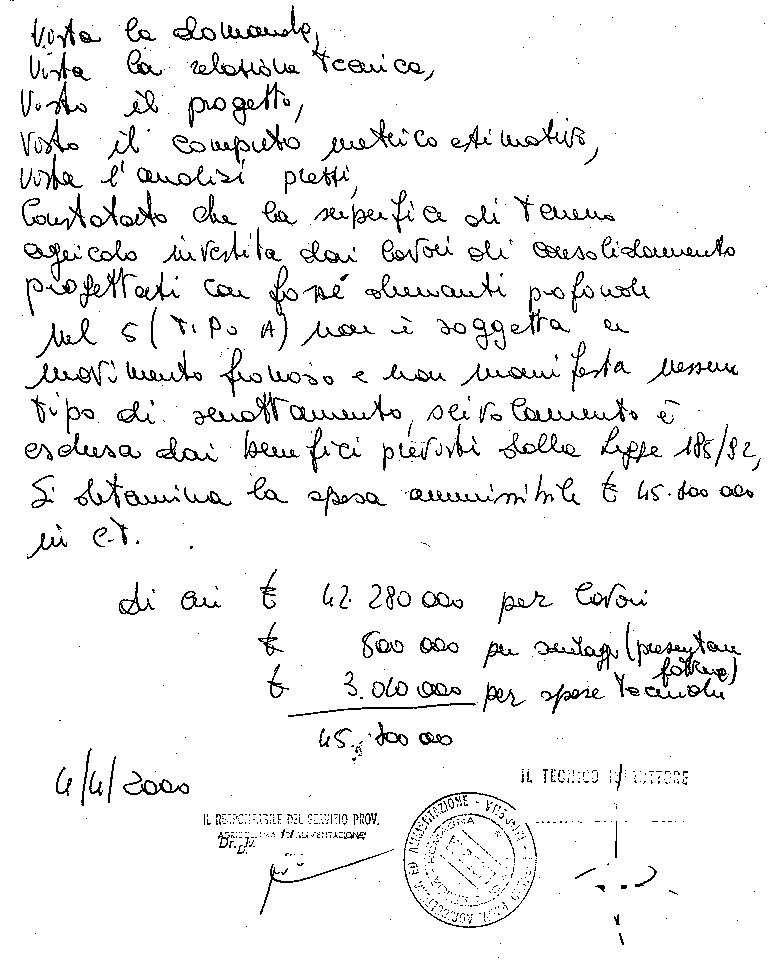 Vista la domanda,
Vista la relazione tecnica,
Visto il progetto,
Visto il computo metrico estimativo,
Vista l'analisi prezzi,
Constatato che la superficie di terreno
agricolo investita dai lavori di consolidamento
progettati con fosse drenanti profonde
nel S (TIPO A) non è soggetta a
movimento franoso e non manifesta nessun
tipo di smottamento, scivolamento è
esclusa dai benefici previsti dalla Legge 185/92,
Si determina la spesa ammissibile £ 45.800 000
in C.T.
di cui £ 42.280 000 per lavori
£ 500 000 per sondaggi (presentare
fatture)
£ 3.010 000 per spese tecniche
45.800 000
4/4/2000
IL TECNICO ISTRUTTORE
IL RESPONSABILE DEL SERVIZIO PROV.
AGRICOLTURA ED ALIMENTAZIONE
Dr.
AGRICOLTURA ED ALIMENTAZIONE